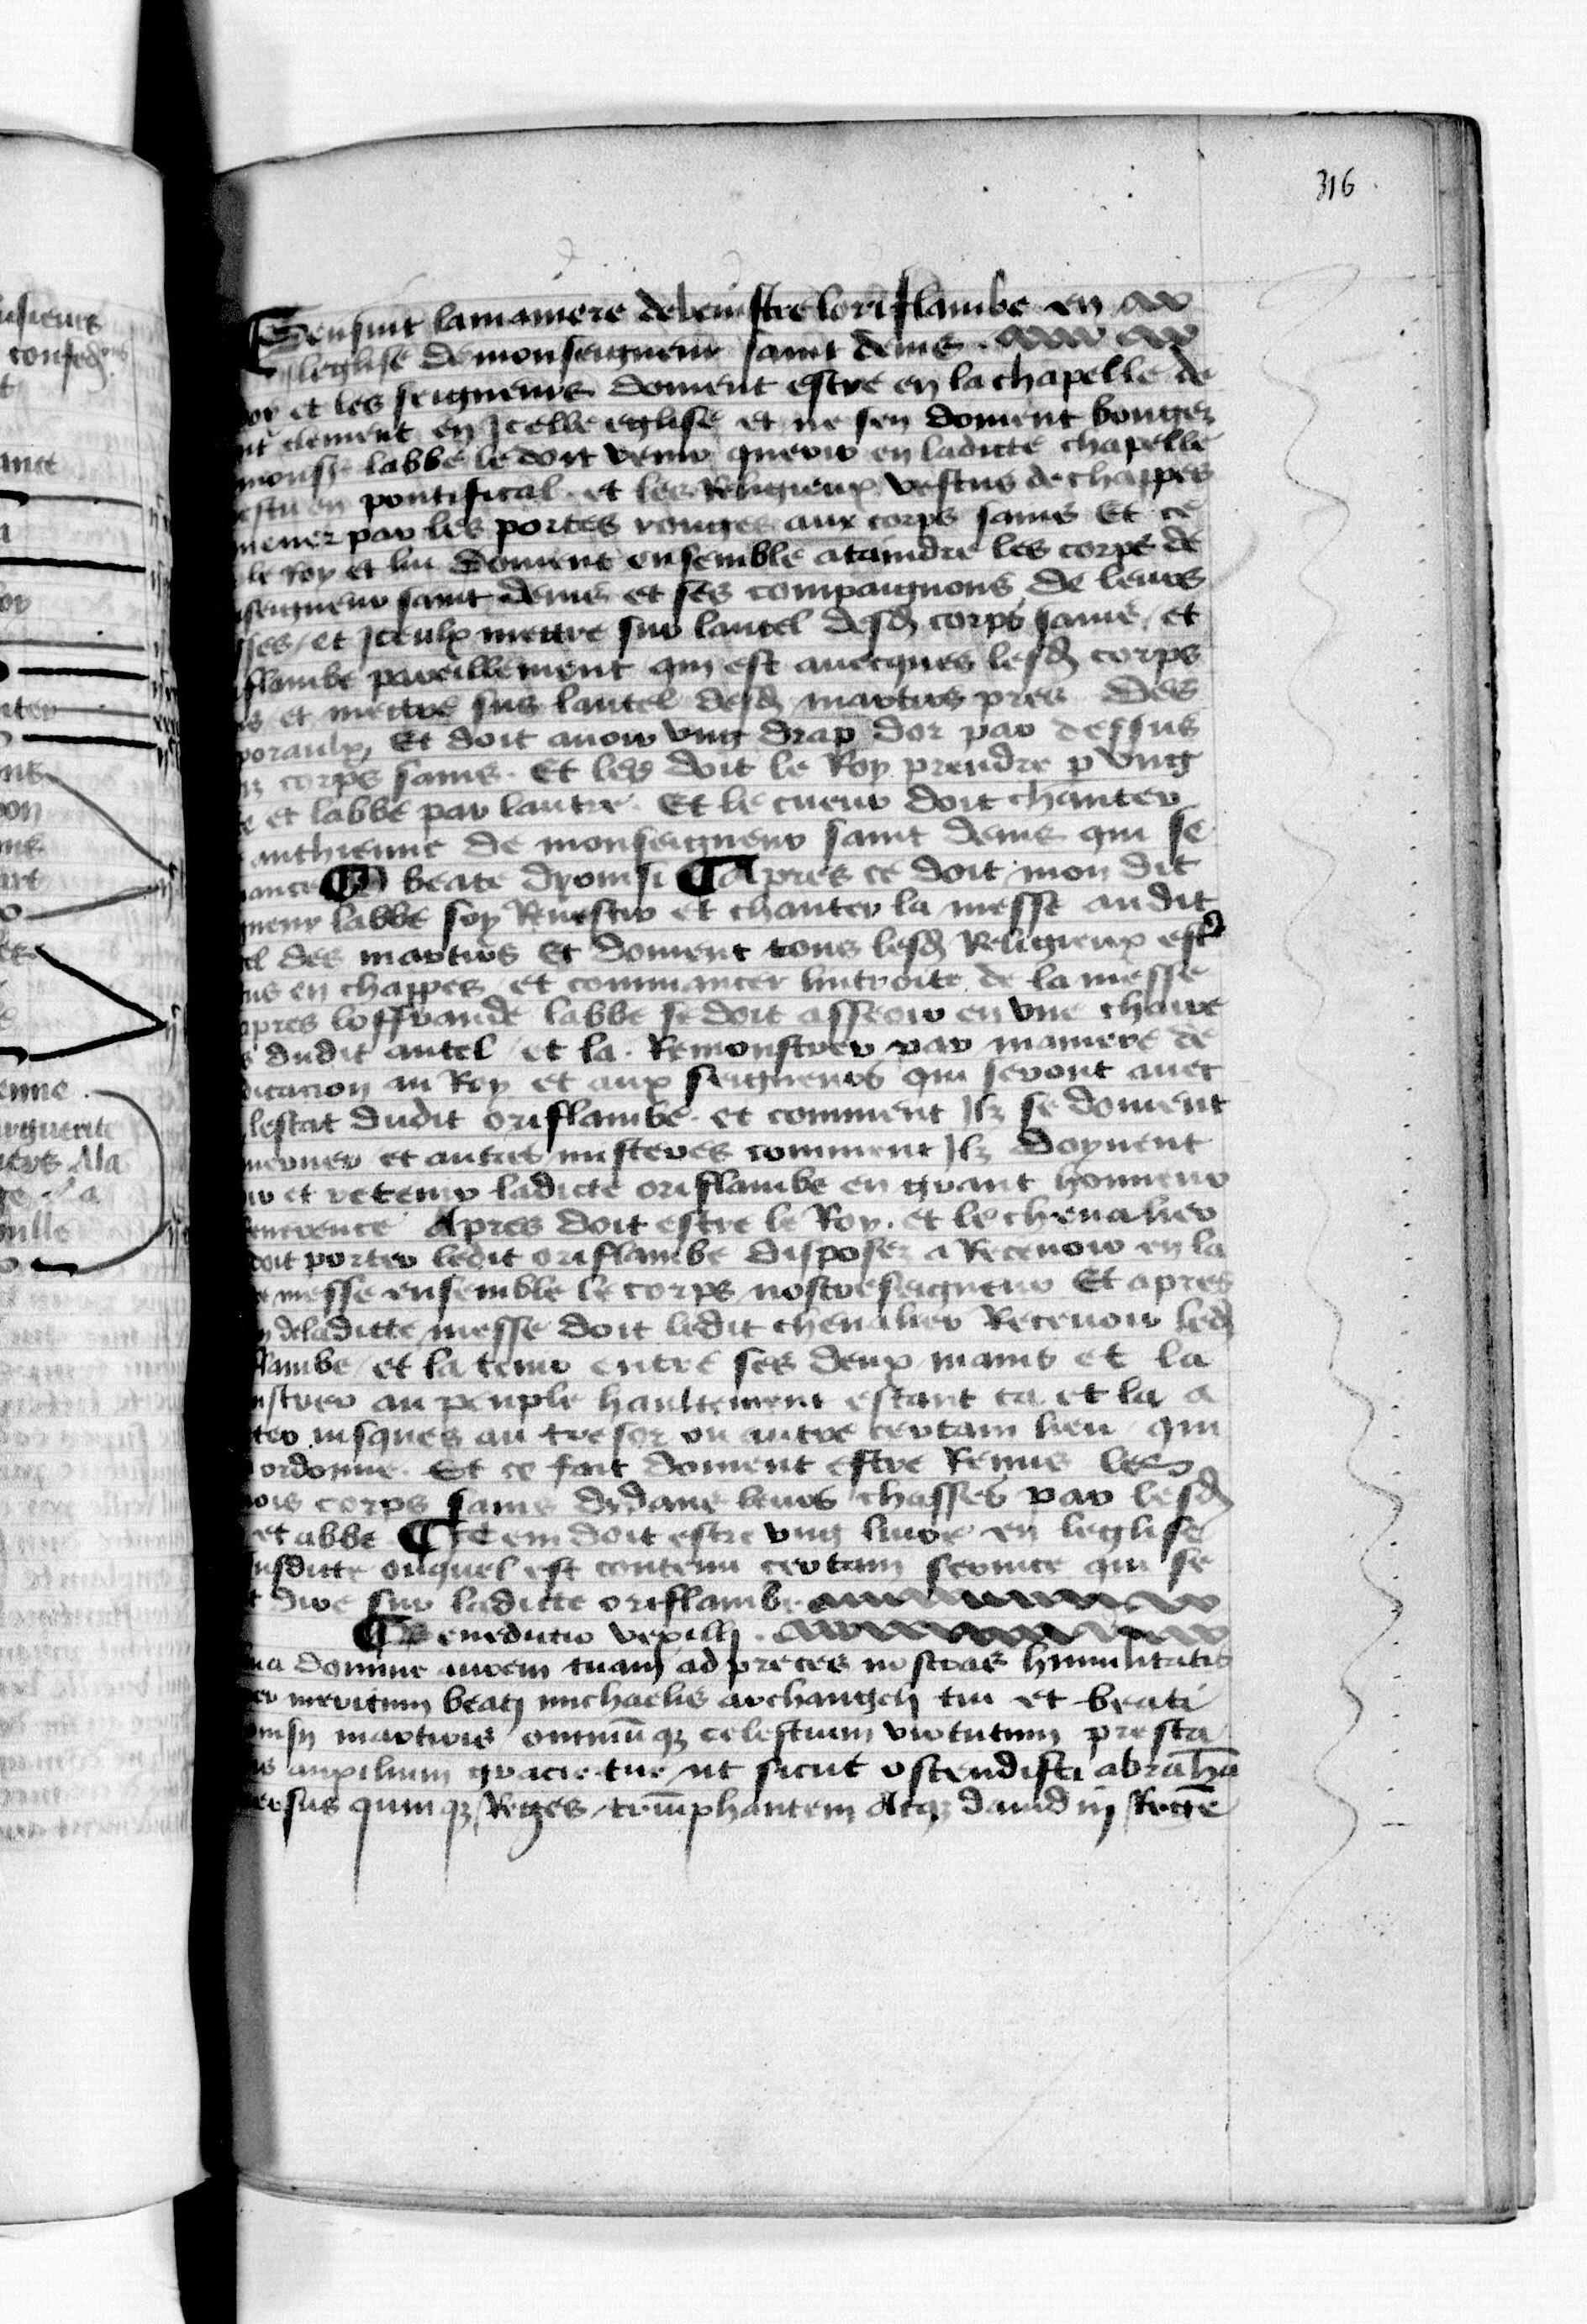 316
Sensuit la maniere de beneistre loriflambe en
leglise de monseigneur saint denis
roy et les seigneurs doivent estre en la chapelle de
nt clement en Icelle eglise et ne sen doivent bouger
mons labbe le doit venir querir en ladicte chapelle
estu en pontifical et les Religieux vestus de chappes
mener par les portes rouges aux corps sains Et ce
le Roy et lui doivent ensemble ataindre les corps de
seigneur saint denis et ses compaignons de leurs
sses et Iceulx mettre sur lautel desd corps sains et
flambe pareillement qui est avecques lesd corps
s et mettre sus lautel desd martirs pres des
poraulx Et doit avoir ung drap dor par dessus
z corps sains. Et les doit le Roy prendre p ung
e et labbe par lautre. Et le cueur doit chanter
anthienne de monseigneur saint denis qui se
mance O beate dyonisi Apres ce doit mon dit
gneur labbe soy Revestir et chanter la messe audit
el des martirs Et doivent tous lesd Religieux est
tus en chappes et commancer lintroite de la messe
apres loffrande labbe se doit asseoir en une chaire
s dudit autel et la Remonstrer par maniere de
dicacion au Roy et aux seigneurs qui seront avec
lestat dudit oriflambe. et comment Ilz se doivent
uverner et autres misteres comment Ilz doyvent
ir et retenir ladicte oriflambe en grant honneur
reverence Apres doit estre le Roy. et le chevalier
doit porter ledit oriflambe disposer a Recevoir en la
e messe ensemble le corps nostreseigneur Et apres
n de ladicte messe doit ledit chevalier Recevoir led
flambe et la tenir entre ses deux mains et la
nstrer au peuple haultement estant ca et la a
ter iusques au tresor ou autre certain lieu qui
ordonne. Et ce fait doivent estre Remis les
rois corps sains dedans leurs chasses par lesd
et abbe Item doit estre ung livre en leglise
susdicte ouquel est contenu certain service qui se
t dire sur ladicte oriflambe
Benedictio vexilli.
lina domine aurem tuam ad preces nostras humilitatis
er meritum beati michaelis archangeli tui et beati
onisii martiris omniuq celestium virtutum presta
is auxilium gracie tue ut sicut ostendisti abraha
ersus quinq Reges triuphantem Atq david in Rege